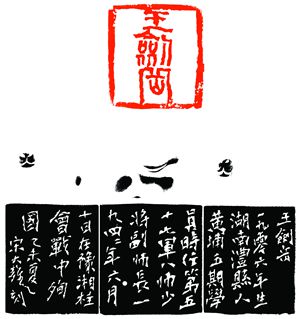 王劍岳
王劍岳
一九零六年生
湖南澧縣人
黃埔五期學
員時任第五
十七軍八師少
將副師長一
九四二年六月
十日在豫湘桂
會戰中殉
國乙未夏
宋大刻